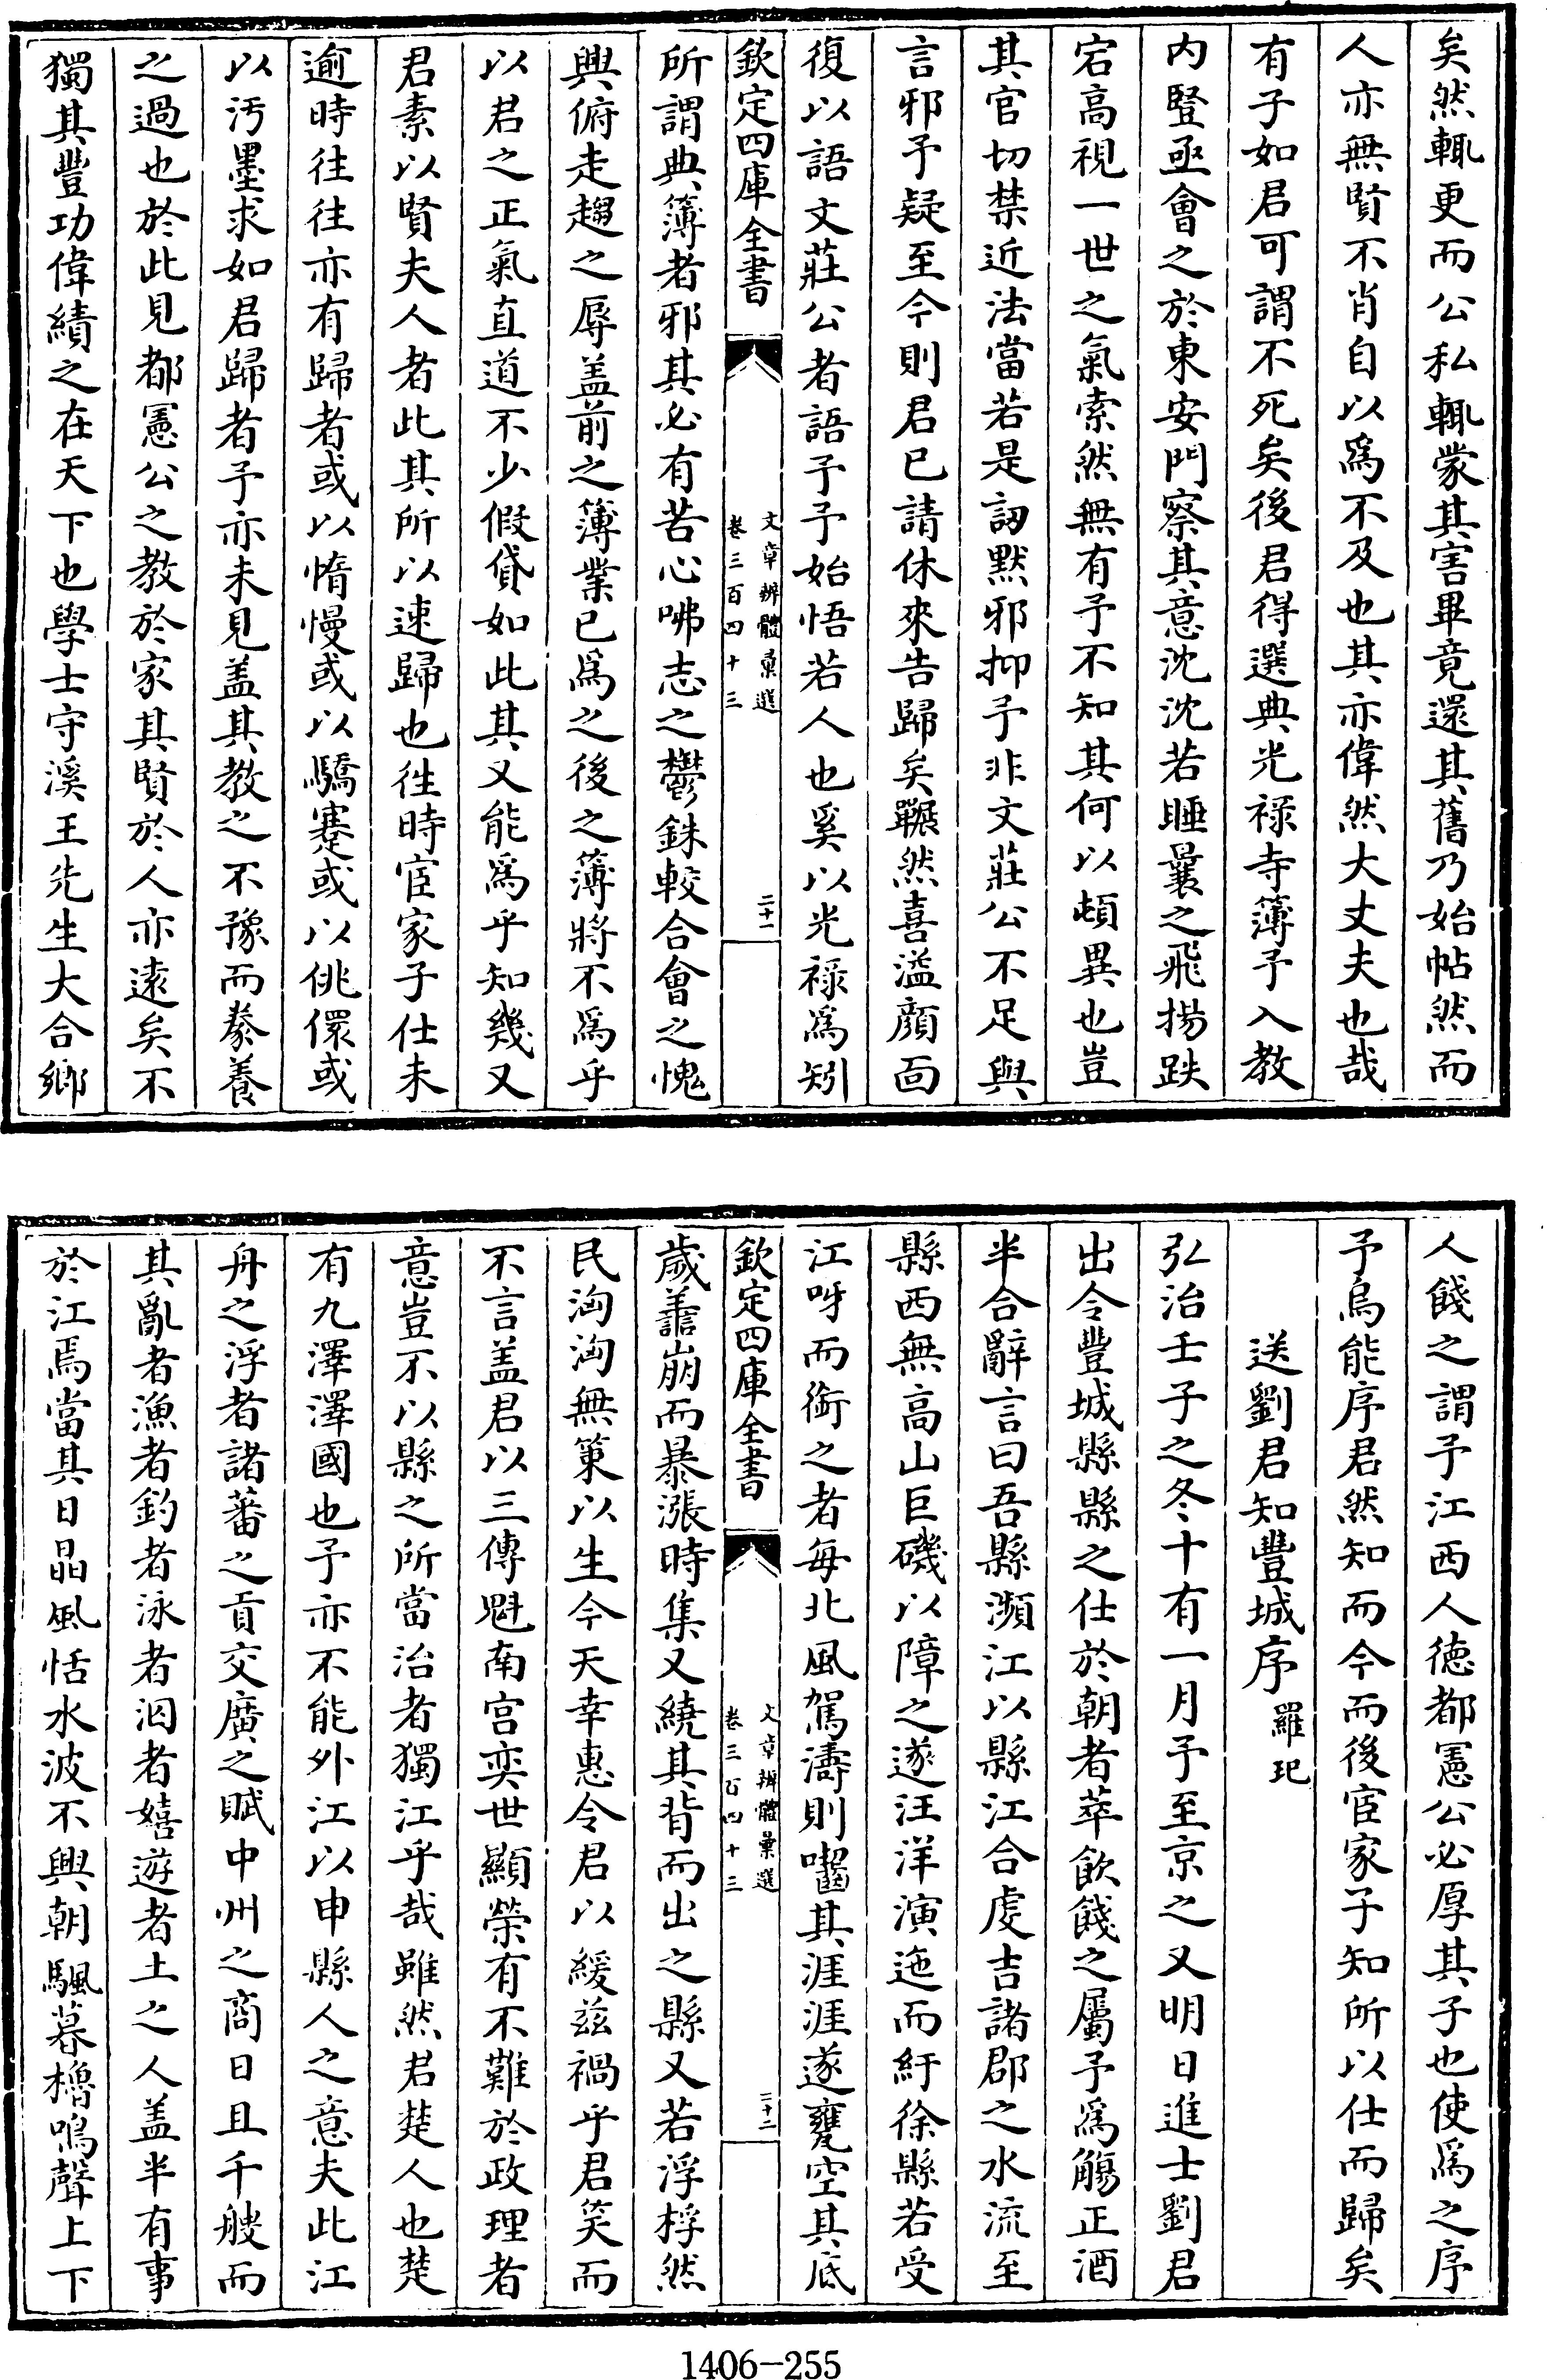 矣然輒更而公私輒蒙其害畢竟還其舊乃始帖然而
人亦無賢不肖自以爲不及也其亦偉然大丈夫也哉
有子如君可謂不死矣後君得選典光禄寺簿予入教
内豎亟會之於東安門察其意沈沈若睡曩之飛揚跌
宕高視一世之氣索然無有予不知其何以頓異也豈
其官切禁近法當若是訒默邪抑予非文莊公不足與
言邪予疑至今則君已請休來告歸矣囅然喜溢顔面
復以語文莊公者語予予始悟若人也奚以光禄爲矧
欽定四庫全書
文章辨體彙選
卷三百四十三
二十一
所謂典簿者邪其必有苦心咈志之鬱銖較合會之愧
興俯走趨之辱盖前之簿業已爲之後之簿將不爲乎
以君之正氣直道不少假貸如此其又能爲乎知幾又
君素以賢夫人者此其所以速歸也徃時宦家子仕未
逾時往往亦有歸者或以惰慢或以驕蹇或以佻儇或
以汚墨求如君歸者予亦未見盖其教之不豫而豢養
之過也於此見都憲公之教於家其賢於人亦逺矣不
獨其豐功偉績之在天下也學士守溪王先生大合鄉
人餞之謂予江西人徳都憲公必厚其子也使爲之序
予烏能序君然知而今而後宦家子知所以仕而歸矣
送劉君知豐城序 羅玘
弘治壬子之冬十有一月予至京之又明日進士劉君
出令豐城縣縣之仕於朝者萃飲餞之屬予爲觴正酒
半合辭言曰吾縣瀕江以縣江合虔吉諸郡之水流至
縣西無高山巨磯以障之遂汪洋演迤而紆徐縣若受
江呀而銜之者每北風駕濤則囓其涯涯遂甕空其底
欽定四庫全書
文章辨體彙選
卷三百四十三
二十二
歲譱崩而暴漲時集又繞其背而出之縣又若浮桴然
民洶洶無策以生今天幸惠令君以緩兹禍乎君笑而
不言盖君以三傳魁南宫奕世顯榮有不難於政理者
意豈不以縣之所當治者獨江乎哉雖然君楚人也楚
有九澤澤國也予亦不能外江以申縣人之意夫此江
舟之浮者諸蕃之貢交廣之賦中州之商日且千艘而
其亂者漁者釣者泳者泅者嬉遊者土之人盖半有事
於江焉當其日晶風恬水波不興朝颿暮櫓鳴聲上下
1406-255